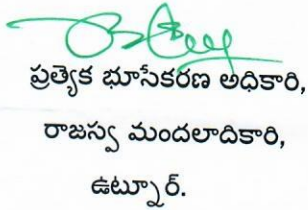 ప్రత్యేక భూసేకరణ అధికారి,
రాజస్వ మండలాదికారి,
ఉట్నూర్.